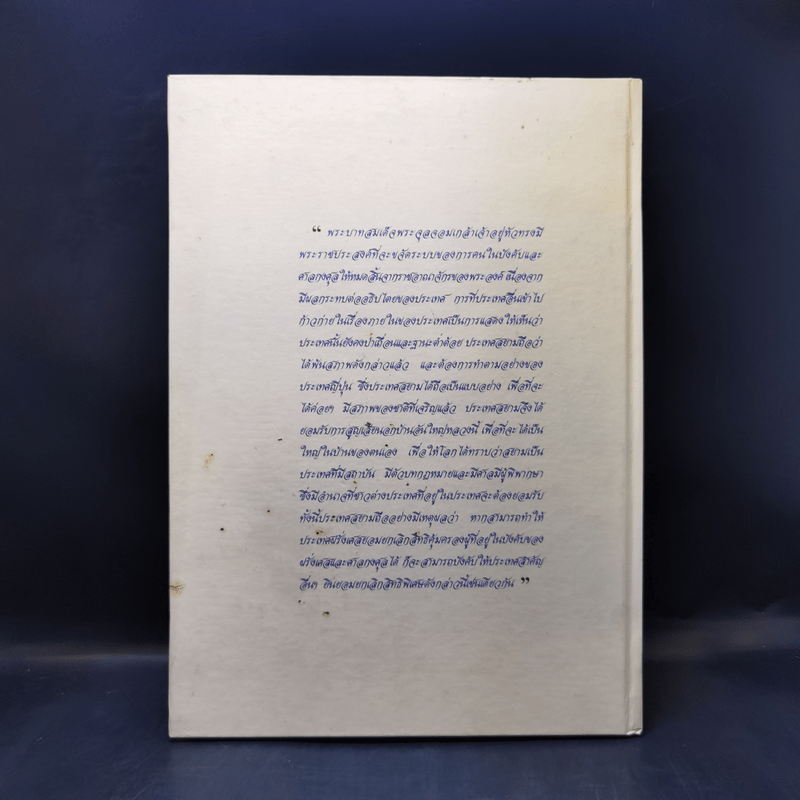 “ พระบาทสมเด็จพระจุลจอมเกล้าเจ้าอยู่หัวทรงมี
พระราชประสงค์ที่จะขจัดระบบของการคนในบังคับและ
ศาลกงศุลให้หมดสิ้นจากราชอาณาจักรของพระองค์ เนื่องจาก
มีผลกระทบต่ออธิปไตยของประเทศ การที่ประเทศอื่นเข้าไป
ก้าวก่ายในเรื่องภายในของประเทศเป็นการแสดงให้เห็นว่า
ประเทศนั้นยังคงป่าเถื่อนและฐานะต่ำต้อย ประเทศสยามถือว่า
ได้พ้นสภาพดังกล่าวแล้ว และต้องการทำตามอย่างของ
ประเทศญี่ปุ่น ซึ่งประเทศสยามได้ถือเป็นแบบอย่าง เพื่อที่จะ
ได้ค่อยๆ มีสภาพของชาติที่เจริญแล้ว ประเทศสยามจึงได้
ยอมรับการสูญเสียนอกบ้านอันใหญ่หลวงนี้ เพื่อที่จะได้เป็น
ใหญ่ในบ้านของตนเอง เพื่อให้โลกได้ทราบว่าสยามเป็น
ประเทศที่มีสถาบัน มีตัวบทกฎหมายและมีศาลมีผู้พิพากษา
ซึ่งมีอำนาจที่ชาวต่างประเทศที่อยู่ในประเทศจะต้องยอมรับ
ทั้งนี้ประเทศสยามถืออย่างมีเหตุผลว่า หากสามารถทำให้
ประเทศฝรั่งเศสยอมยกเลิกสิทธิคุ้มครองผู้ที่อยู่ในบังคับของ
ฝรั่งเศสและศาลกงศุลได้ ก็จะสามารถบังคับให้ประเทศสำคัญ
อื่นๆ ยินยอมยกเลิกสิทธิพิเศษดังกล่าวนี้เช่นเดียวกัน ”